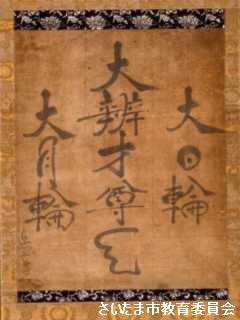 大日輪
大辨才尊天
大月輪
さいたま市教育委員会